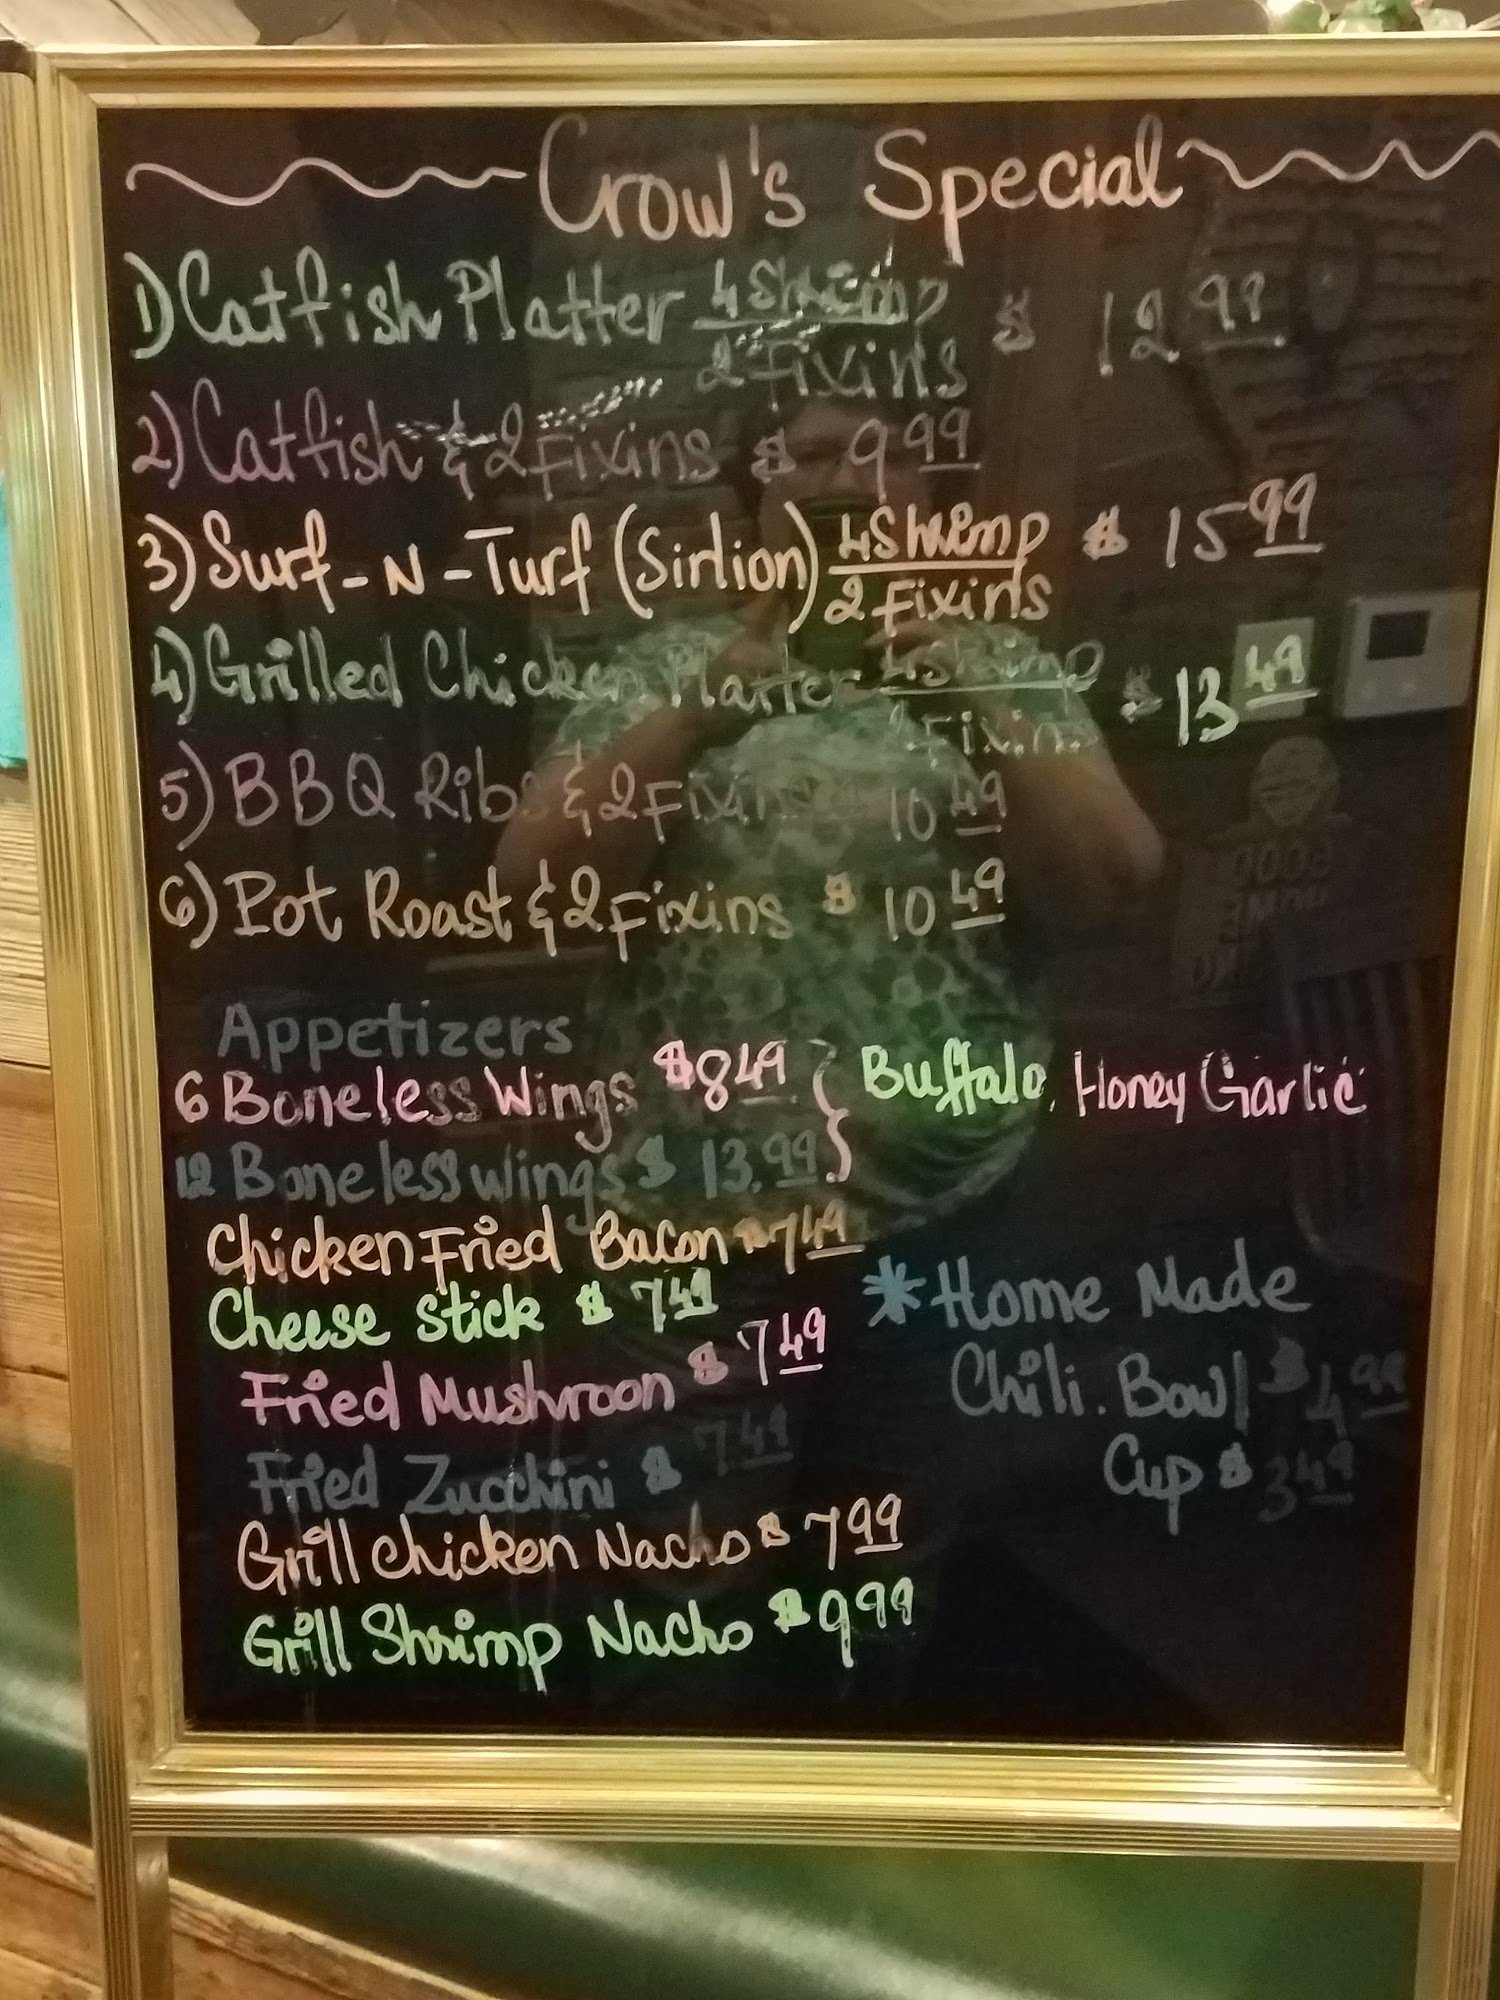 Crow's Special
1) Catfish Platter 4 Shrimp $ 12 99
2 Fixins
2) Catfish & 2 Fixins $ 9 99
3) Surf-N-Turf (Sirlion) 4 Shrimp $ 15 99
2 Fixins
4) Grilled Chicken Platter 4 Shrimp $ 13 49
2 Fixins
5) BBQ Ribs & 2 Fixins 10 49
6) Pot Roast & 2 Fixins $ 10 49
Appetizers
6 Boneless Wings $8 49 } Buffalo, Honey Garlic
12 Boneless wings $ 13.99
Chicken Fried Bacon $7 49
Cheese Stick $ 7 49
Fried Mushroon $ 7 49
Fried Zucchini $ 7 49
Grill Chicken Nacho $ 7 99
Grill Shrimp Nacho $9 99
*Home Made
Chili. Bowl $ 4 99
Cup $ 3 49